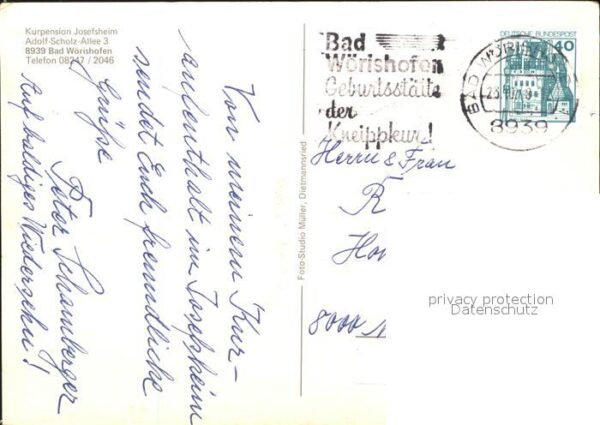 Kurpension Josefsheim
Adolf-Scholz-Allee 3
8939 Bad Wörishofen
Telefon 08247 / 2046
Von meinem Kur-
aufenthalt im Josefsheim
sendet Euch freundliche
Grüße
Peter Schamberger
Auf baldiges Wiedersehen!
Foto-Studio Müller, Dietmannsried
Bad
Wörishofen
Geburtsstätte
der
Kneippkur!
BAD WÖRISHOFEN
8939
DEUTSCHE BUNDESPOST
40
Herrn & Frau
R
Ho
8000 M
privacy protection
Datenschutz